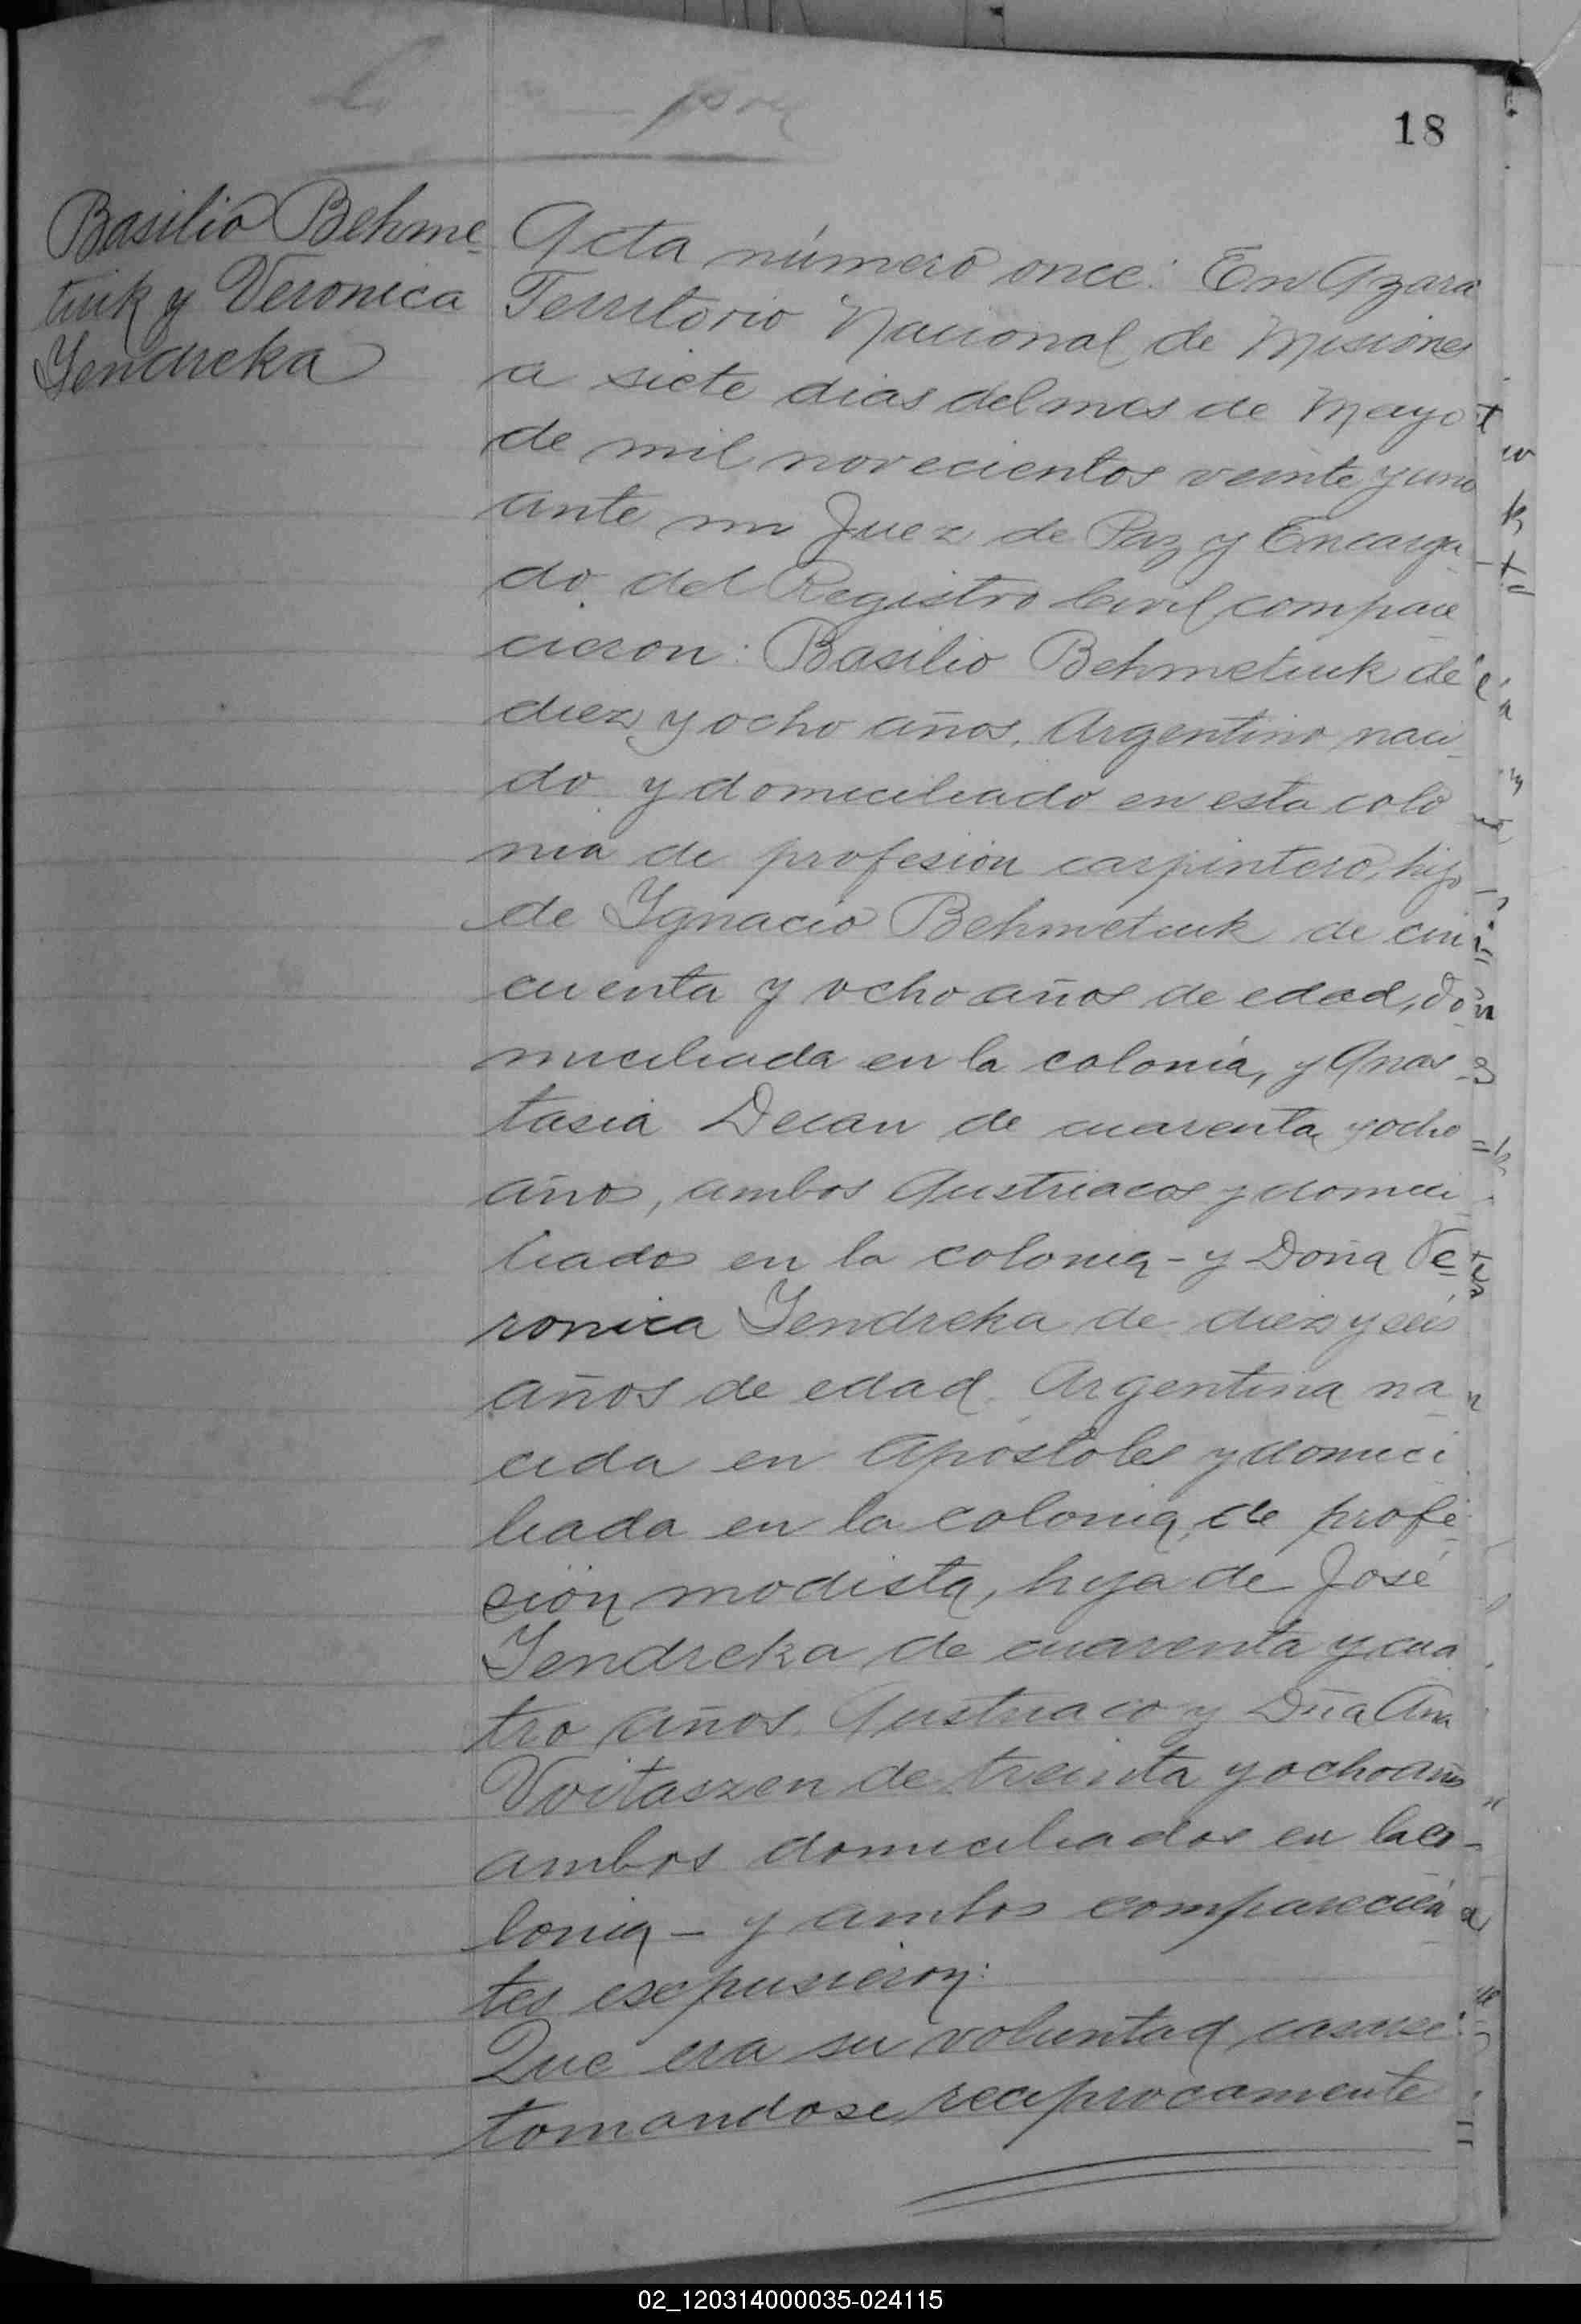 18
Basilio Behme-
tiuk y Veronica
Yendreka
Acta número once: En Azara
Territorio Nacional de Misiones
a siete dias del mes de Mayo
de mil novecientos veinte y uno
ante mi Juez de Paz y Encarga-
do del Registro Civil compare-
cieron: Basilio Behmetiuk de
diez y ocho años, Argentino naci-
do y domiciliado en esta colo
nia de profesion carpintero, hijo
de Ygnacio Behmetiuk de cin
cuenta y ocho años de edad, do-
miciliada en la colonia, y Anas-
tasia Decan de cuarenta y ocho
años, ambos Austriacos y domici
liados en la colonia - y Doña Ve-
ronica Yendreka de diez y seis
años de edad. Argentina na-
cida en Apóstoles y domici
liada en la colonia, de profe-
sion modista, hija de José
Yendreka de cuarenta y cua
tro años. Austriaco y Dña Ana
Voitaszen de treinta y ocho años
ambos domiciliados en la co-
lonia - y ambos comparecien-
tes esepusieron:
Que era su voluntad casarse
tomandose reciprocamente
02_120314000035-024115